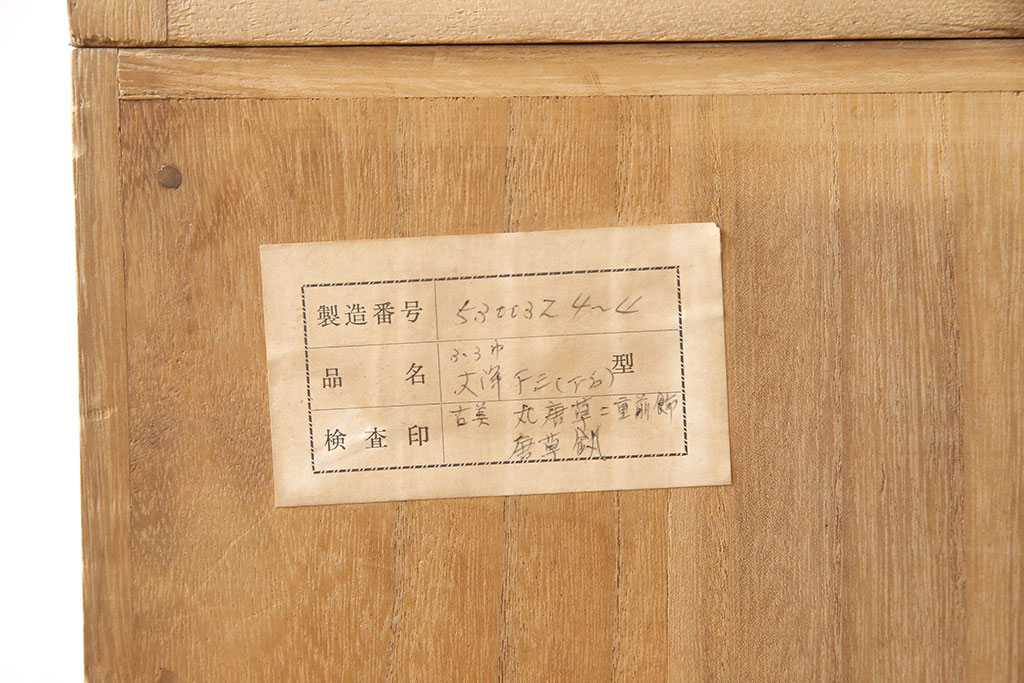 製造番号 53003Z 4~4
3.3巾
品名 文洋 下三(下台) 型
検査印 古美 丸唐草二重前飾
唐草